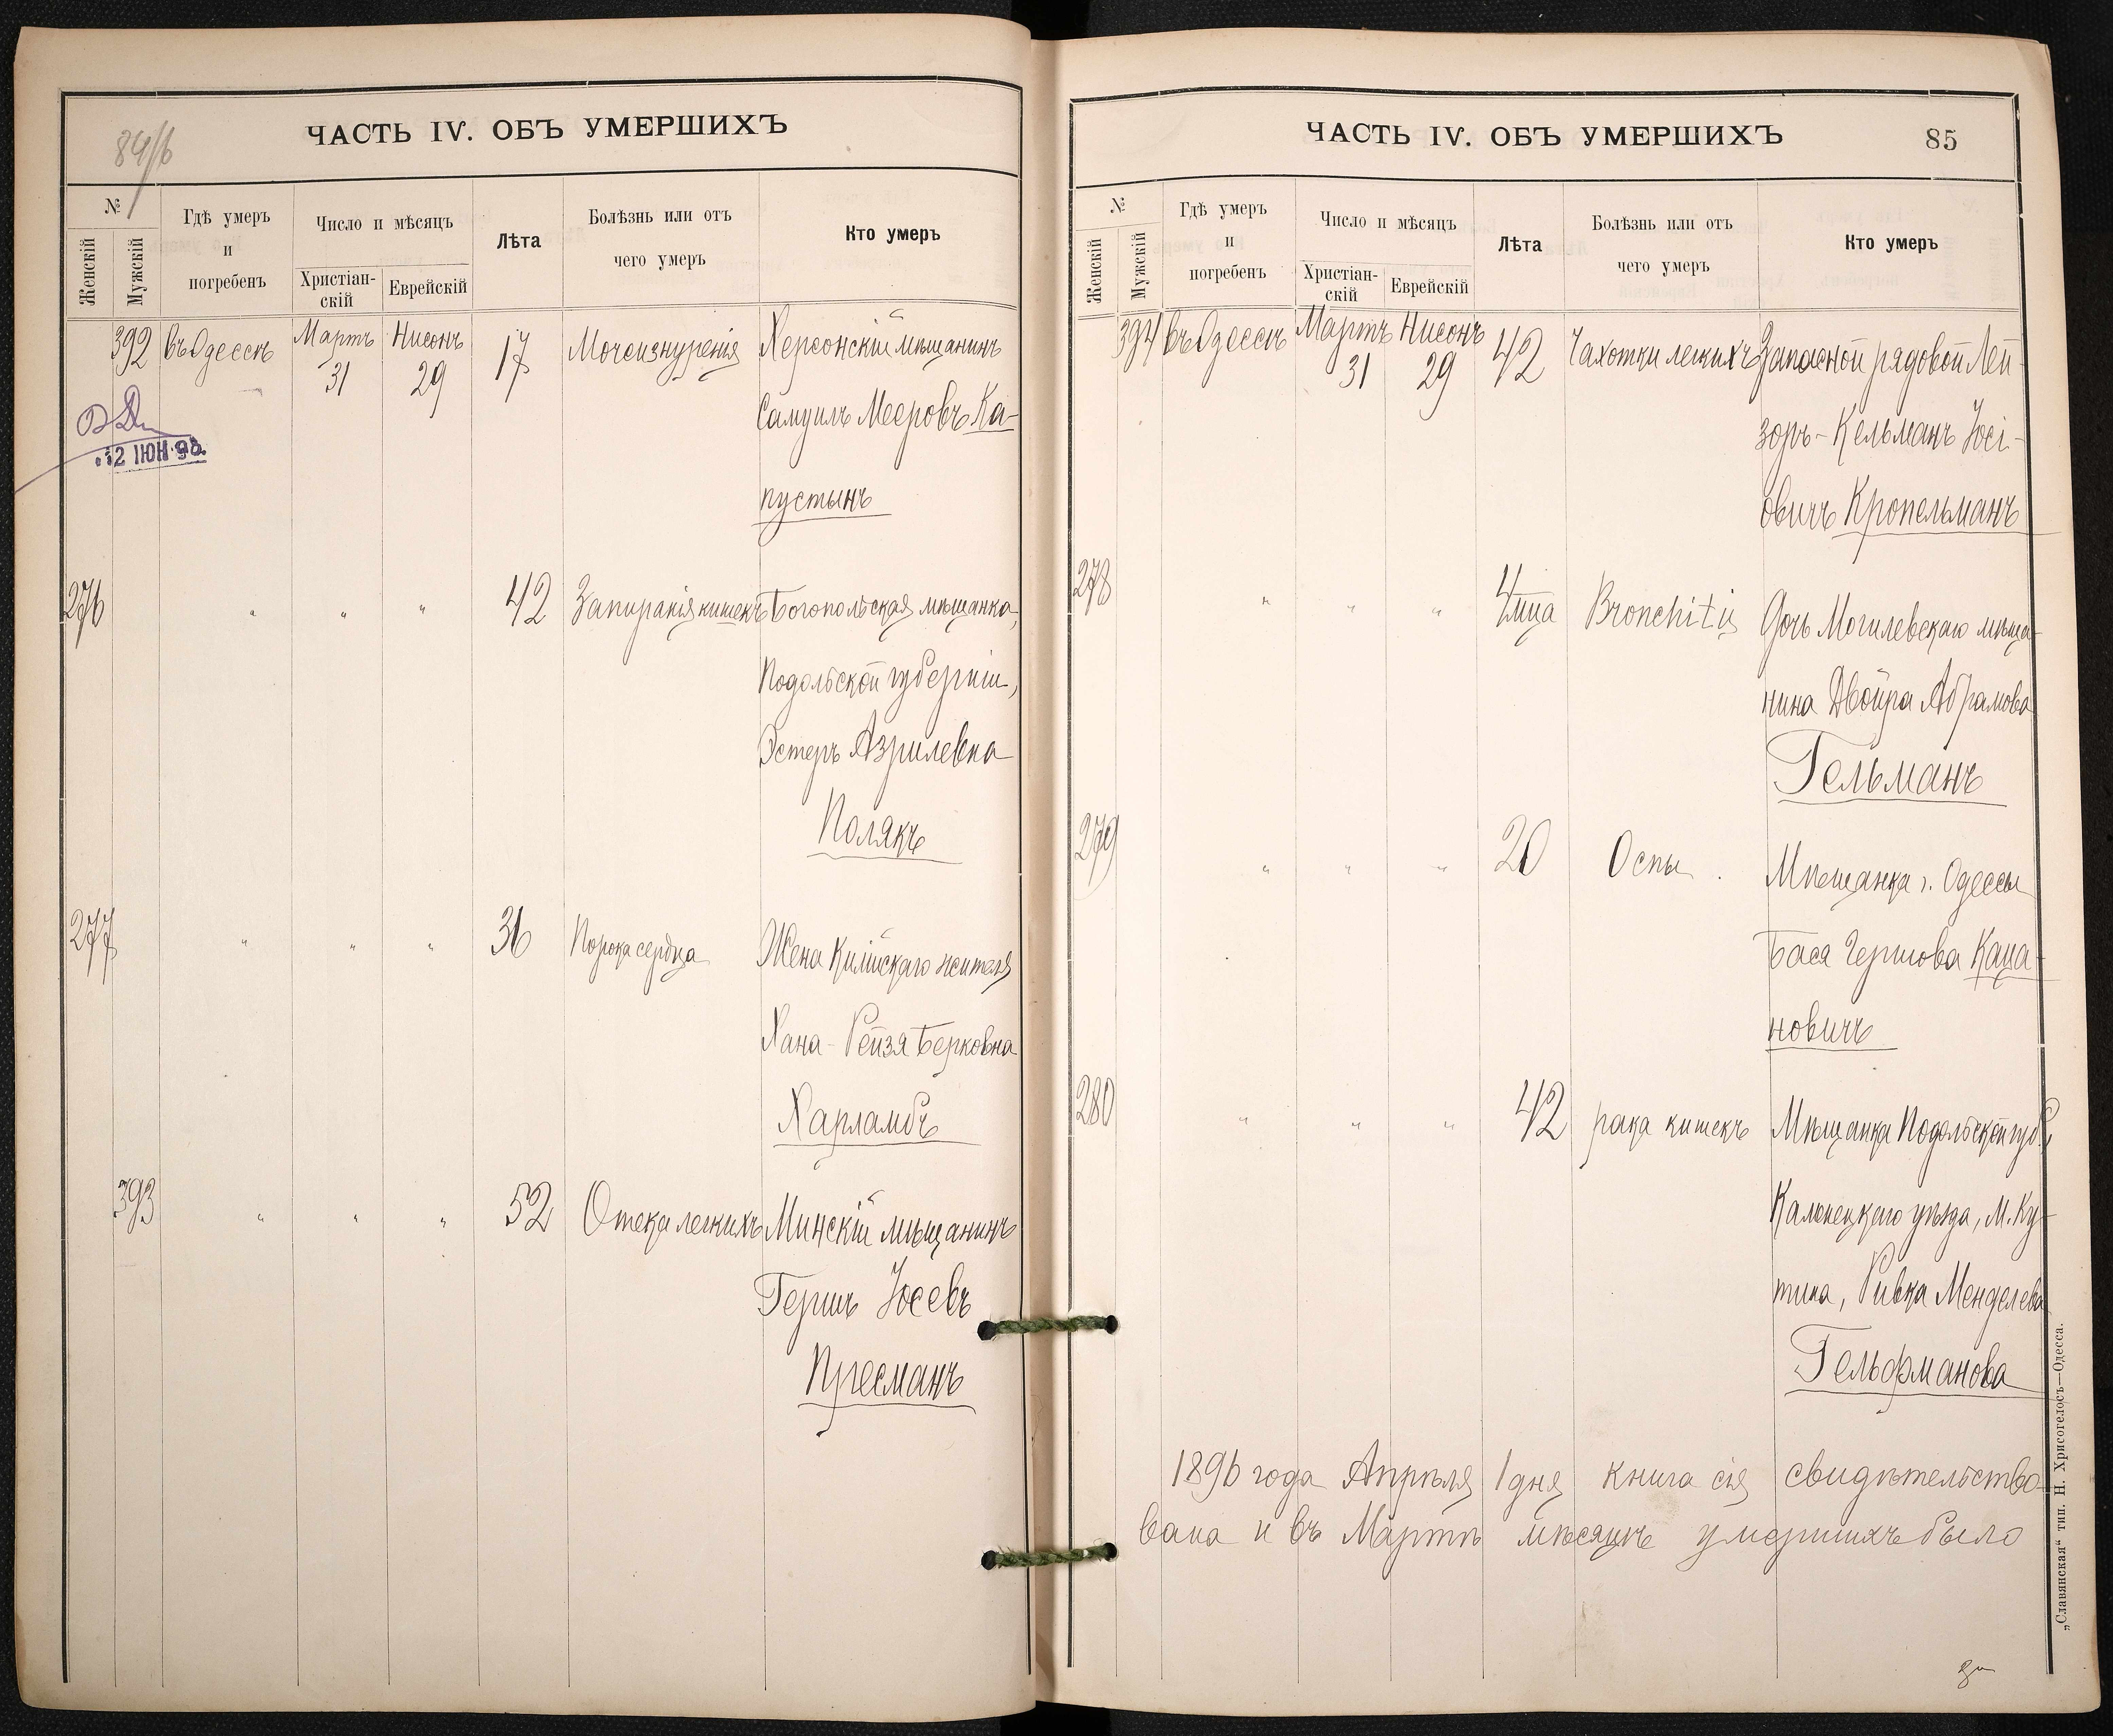 84/б
ЧАСТЬ IV. ОБЪ УМЕРШИХЪ
№
Женскій
Мужскій
Гдѣ умеръ
и
погребенъ
Число и мѣсяцъ
Христіан-
скій
Еврейскій
Лѣта
Болѣзнь или отъ
чего умеръ
Кто умеръ
392 въ Одессѣ Мартъ 31 Нисонъ 29 17 Мочеизнуренія Херсонскій мѣщанинъ
Самуилъ Мееровъ Ка-
пустынъ
12 ІЮН 98.
276 " " " 42 Запиранія кишекъ Богопольская мѣщанка,
Подольской губерніи,
Эстеръ Азрилевна
Полякъ
277 " " " 36 Порока сердца Жена Килійскаго жителя
Хана-Рейзя Берковна
Харламбъ
393 " " " 52 Отека легкихъ Минскій мѣщанинъ
Гершъ Іосевъ
Пресманъ
ЧАСТЬ IV. ОБЪ УМЕРШИХЪ
85
№
Женскій
Мужскій
Гдѣ умеръ
и
погребенъ
Число и мѣсяцъ
Христіан-
скій
Еврейскій
Лѣта
Болѣзнь или отъ
чего умеръ
Кто умеръ
394 въ Одессѣ Мартъ 31 Нисонъ 29 42 Чахотки легкихъ Запасной рядовой Лей-
зоръ-Кельманъ Іосі-
овичъ Кропельманъ
278 " " " 4 м-ца Bronchitis Дочь Могилевскаго мѣща-
нина Двойра Абрамова
Гельманъ
279 " " " 20 Оспы. Мѣщанка г. Одессы
Бася Гершова Каца-
новичъ
280 " " " 42 рака кишекъ Мѣщанка Подольской губ.,
Каменецкаго уѣзда, м. Ку-
тина, Ривка Менделева
Гельфманова
1896 года Апрѣля 1 дня книга сія свидѣтельство-
вана и въ Мартѣ мѣсяцѣ умершихъ было
„Славянская“ тип. Н. Хрисогелосъ—Одесса.